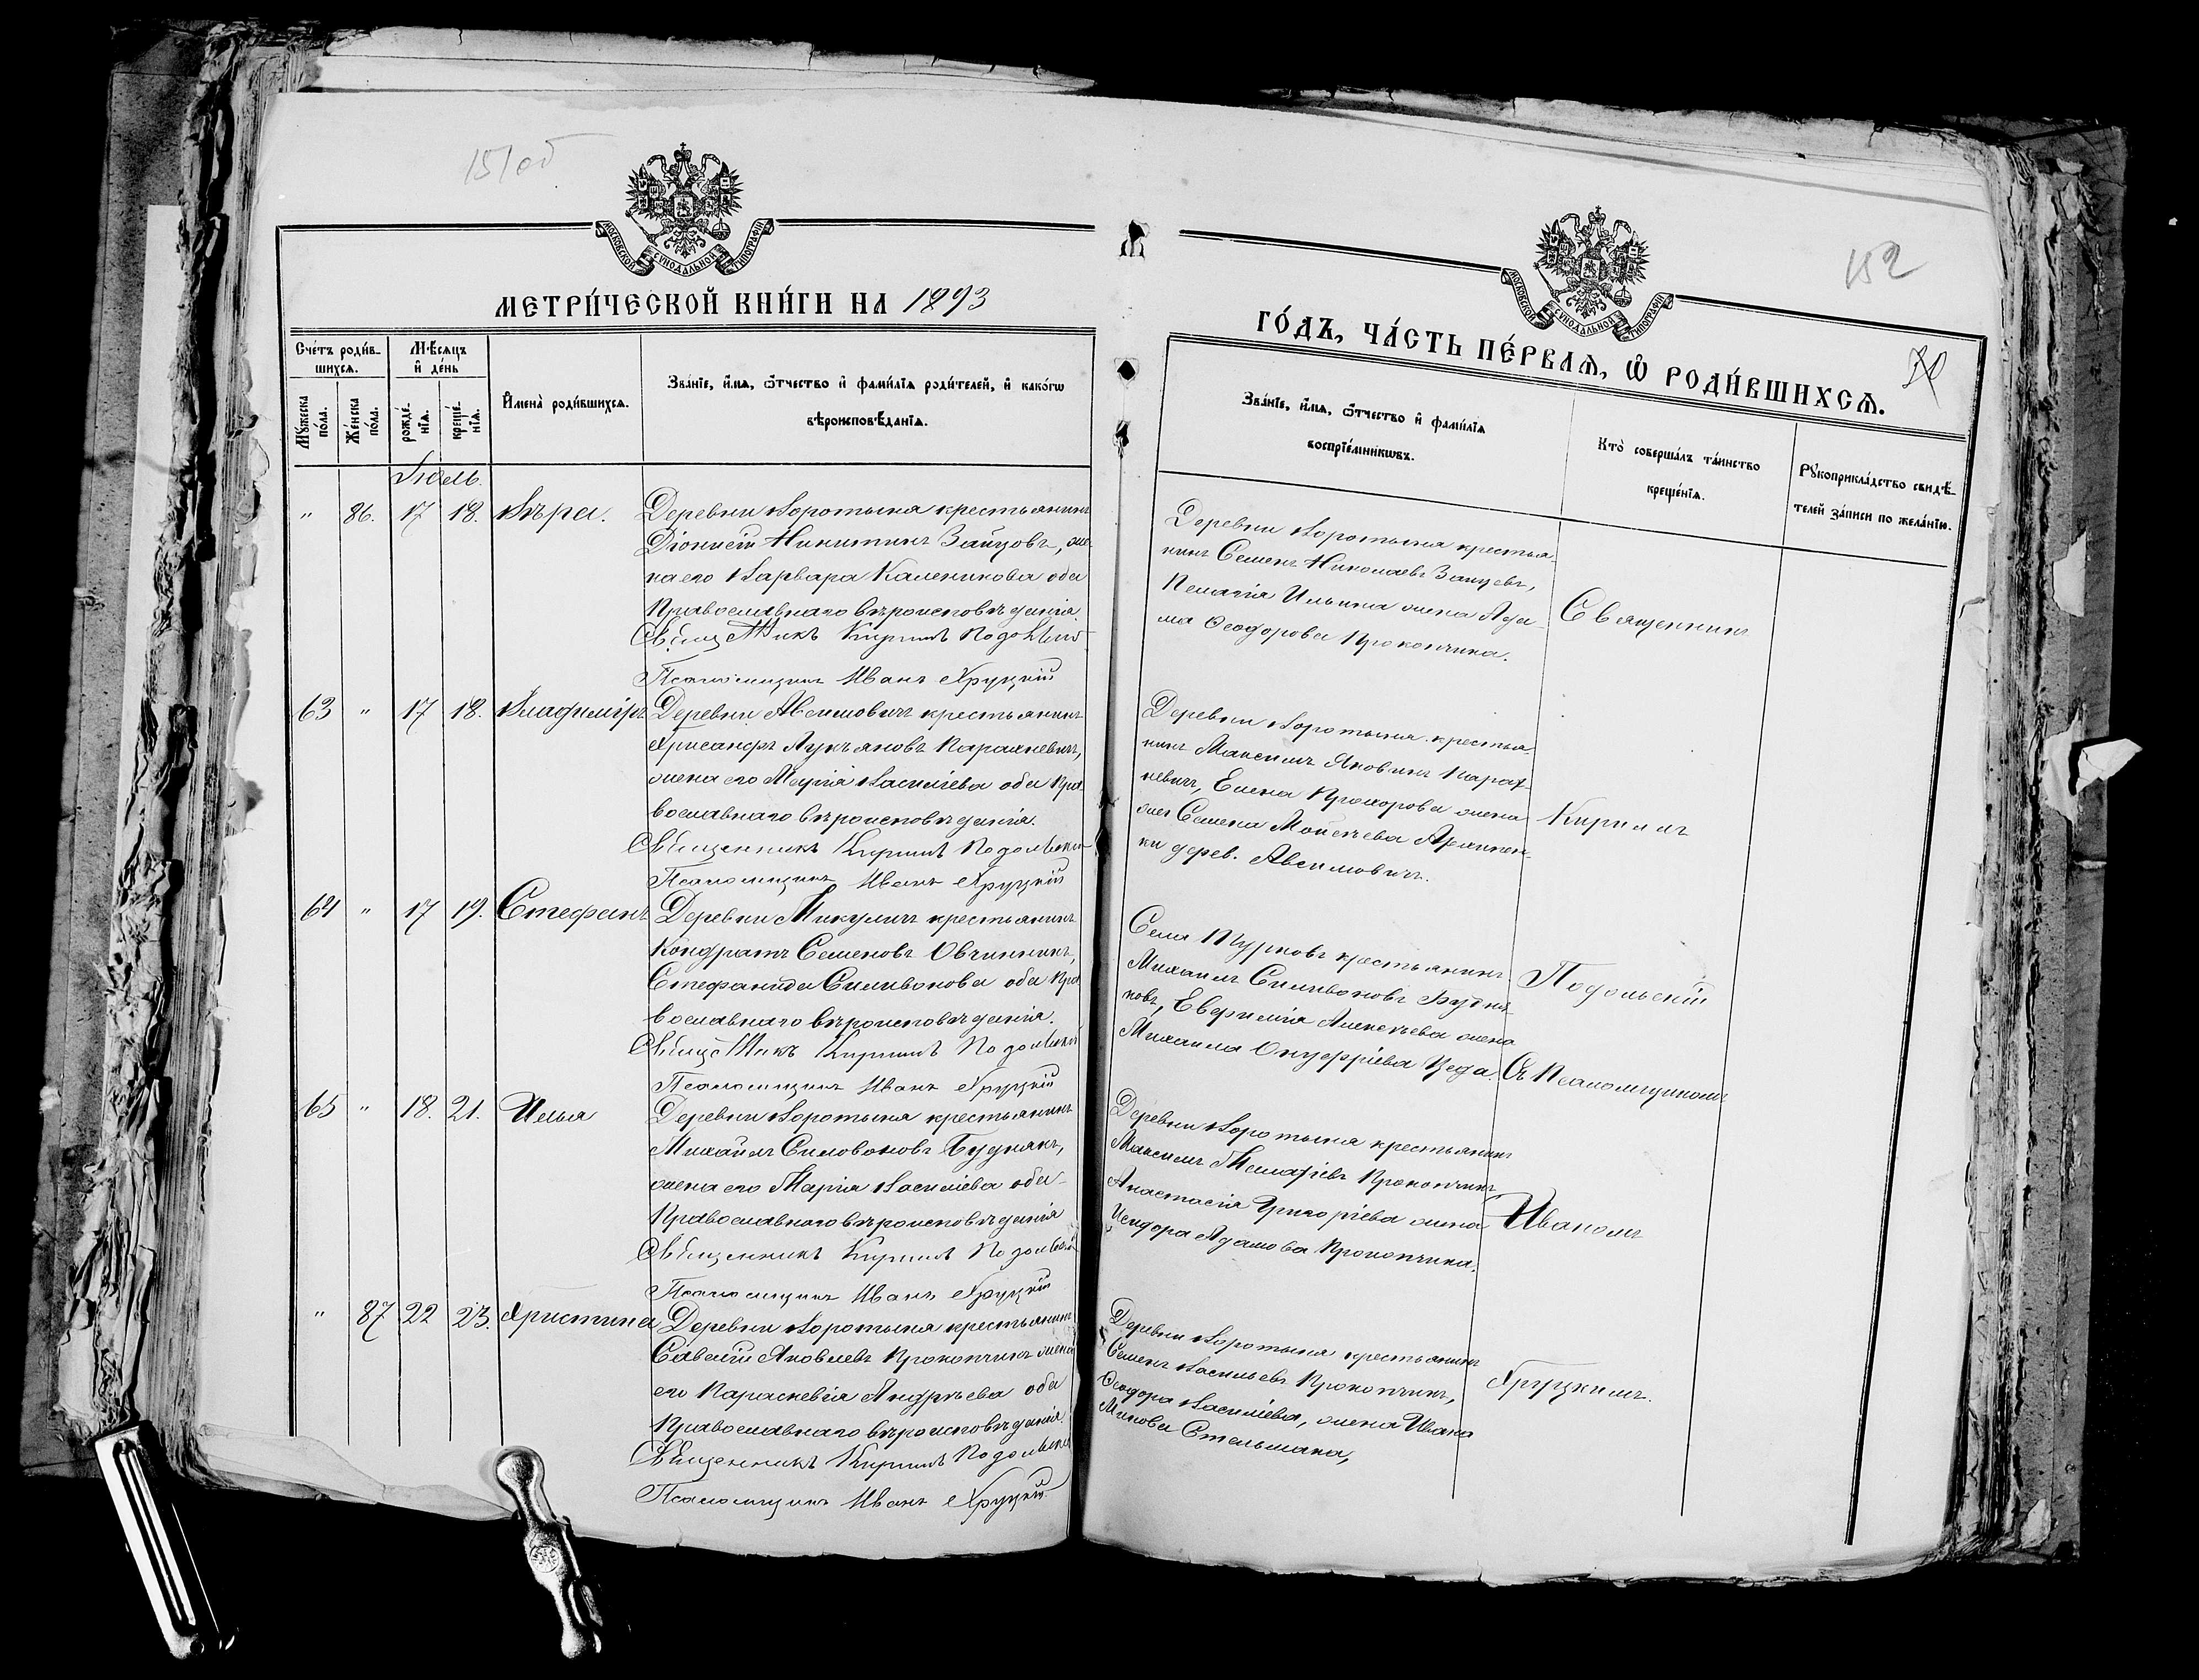 151 об
МОСКОВСКОЙ СУНОДАЛЬНОЙ ТИПОГРАФІИ
МЕТРИ́ЧЕСКОЙ КНИ́ГИ НА 1893
Сче́тъ роди́в-
шихсѧ.
Мѣ́сѧцъ
и҆ де́нь
Мꙋ́жеска
по́ла.
Же́нска
по́ла.
рожде́-
нїѧ.
креще́-
нїѧ.
И҆мена̀ роди́вшихсѧ.
Зва́нїе, и҆́мѧ, ѻ҆́тчество и҆ фами́лїѧ роди́телей, и҆ како́гѡ
вѣроисповѣ́данїѧ.
Іюль.
" 86. 17 18. Вѣра. Деревни Воротыня крестьянинъ
Діонисій Никитинъ Зайцовъ, же-
на его Варвара Каленикова оба
Православнаго вѣроисповѣданія.
Священникъ Кириллъ Подольскій
Псаломщикъ Иванъ Хруцкій
63 " 17 18. Владиміръ Деревни Авсимовичъ крестьянинъ
Хрисанфъ Лукьяновъ Парахневичъ,
жена его Марія Василіева оба Пра-
вославнаго вѣроисповѣданія.
Священникъ Кириллъ Подольскій
Псаломщикъ Иванъ Хруцкій
64 " 17 19. Стефанъ Деревни Микуличъ крестьянинъ
Кондратъ Семеновъ Овчинникъ,
Стефанида Силивонова оба Пра-
вославнаго вѣроисповѣданія.
Священникъ Кириллъ Подольскій
Псаломщикъ Иванъ Хруцкій
65 " 18. 21. Илья Деревни Воротыня крестьянинъ
Михаилъ Силовоновъ Буднякъ,
жена его Марія Василіева оба
Православнаго вѣроисповѣданія
Священникъ Кириллъ Подольскій
Псаломщикъ Иванъ Хруцкій
" 87 22 23. Христина Деревни Воротыня крестьянинъ
Савелій Яковлевъ Прокопчикъ жена
его Параскевія Андреева оба
Православнаго вѣроисповѣданія.
Священникъ Кириллъ Подольскій
Псаломщикъ Иванъ Хруцкій
152
МОСКОВСКОЙ СУНОДАЛЬНОЙ ТИПОГРАФІИ
ГО́ДЪ, ЧА́СТЬ ПЕ́РВАѦ, Ѡ҆ РОДИ́ВШИХСѦ.
Зва́нїе, и҆́мѧ, ѻ҆́тчество и҆ фами́лїѧ
воспрїе́мникѡвъ.
Кто̀ соверша́лъ та́инство
креще́нїѧ.
Рꙋкоприкла́дство свидѣ́-
телей за́писи по жела́нїю.
Деревни Воротыня крестья-
нинъ Семенъ Николаевъ Зайцевъ,
Пелагія Ильина жена Ада-
ма Ѳеодорова Прокопчика.
Деревни Воротыня крестья-
нинъ Максимъ Яковинъ Парах-
невичъ, Елена Прохорова жена
Семена Моисеева
дерев. Авсимовичъ.
Села Турковъ крестьянинъ
Михаилъ Силивоновъ Будня-
ковъ, Евфимія Алексѣева жена
Михаила Онуфріева
Деревни Воротыня крестьянинъ
Максимъ Прокопчикъ,
Анастасія Григоріева жена
Исидора Адамова Прокопчика.
Деревни Воротыня крестьянинъ
Семенъ Васильевъ Прокопчикъ,
Ѳеодора Василіева, жена Ивана
Минова Стельмаха,
Священникъ
Кириллъ
Подольскій
Съ Псаломщикомъ
Иваномъ
Хруцкимъ.